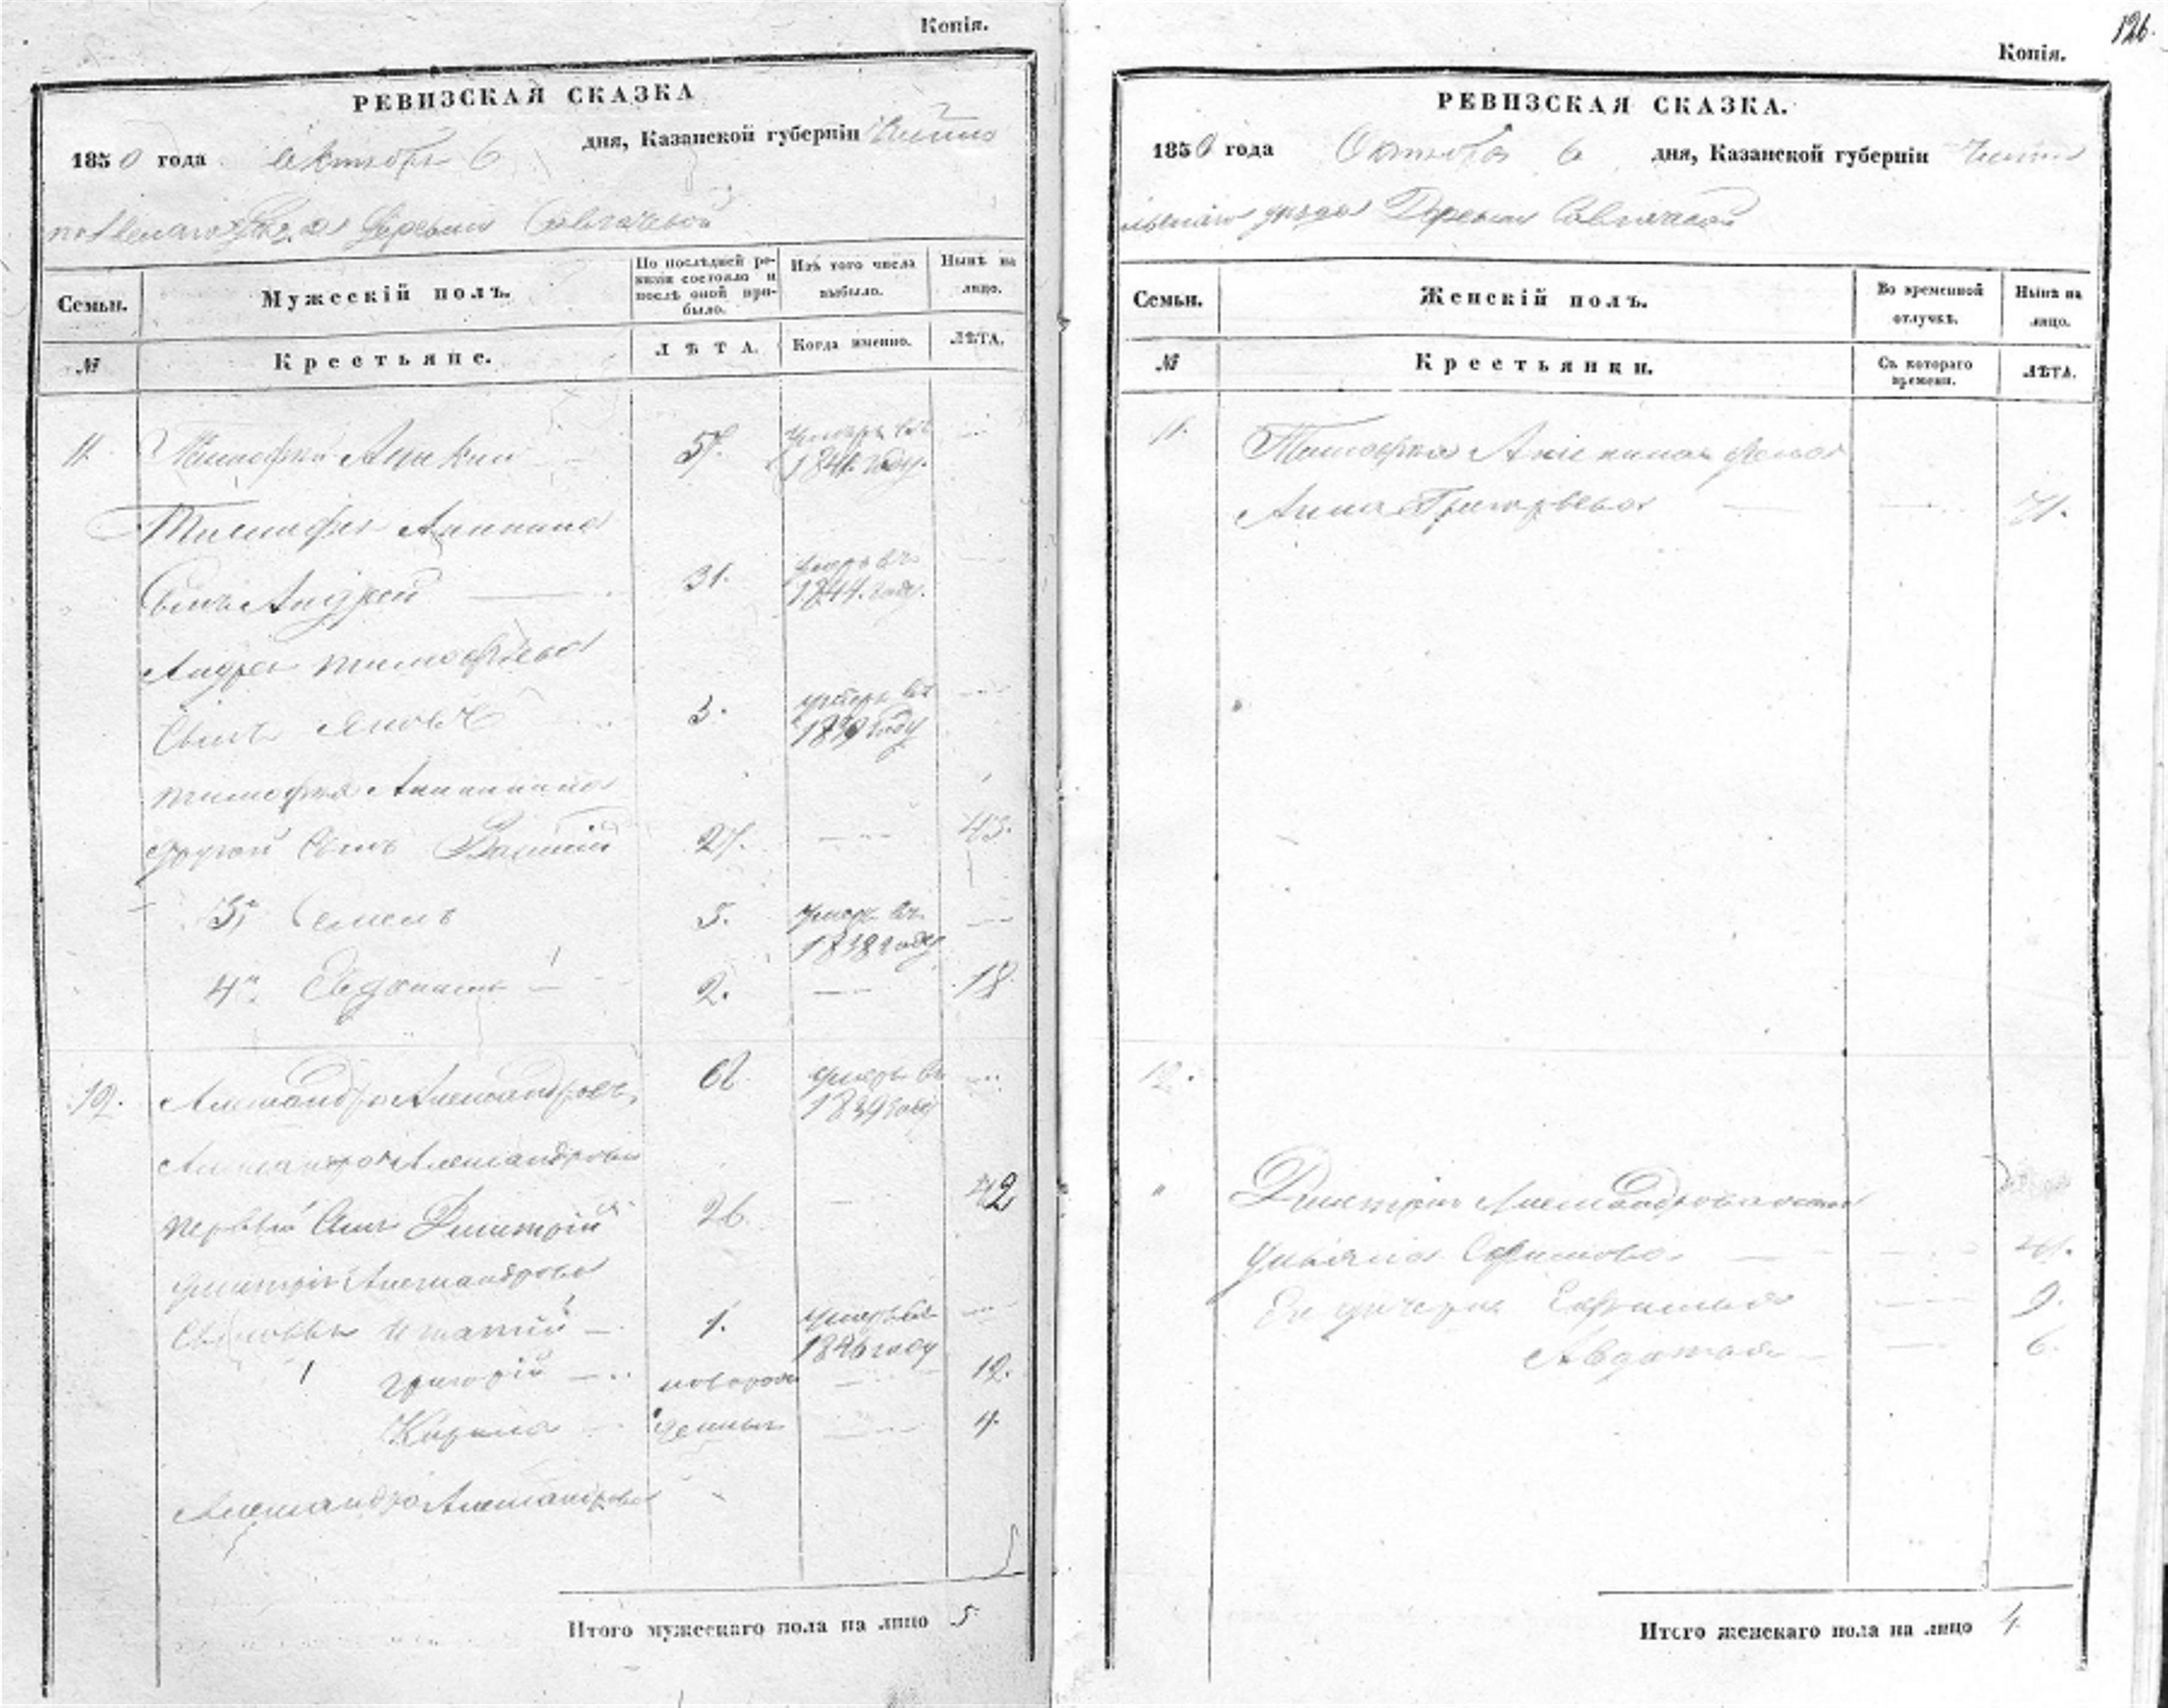 Копія.
РЕВИЗСКАЯ СКАЗКА
1850 года октября 6 дня, Казанской губерніи Чисто
польскаго уѣзда деревни
Семьи.
Мужескій полъ.
По послѣдней ре-
визіи состояло и
послѣ оной при-
было.
Изъ того числа
выбыло.
Нынѣ на
лицо.
№
Крестьяне.
ЛѢТА.
Когда именно.
ЛѢТА.
11. Тимофей Аникин 57. умеръ въ —
1841. году.
Тимофея Аникина
сынъ Андрей — 31. умеръ въ —
1844. году.
Андрея Тимофеева
сынъ 3. умеръ въ —
1839 году
Тимофея Аникина
другой сынъ Василій 27. — 43.
3й Семенъ 5. умеръ въ —
1838 году
4й 2. — 18
12. Александръ Александровъ 62 умеръ въ —
1839 году
Александра Александрова
первый сынъ Дмитрій 26 — 42
Дмитрія Александрова
сыновья Игнатій — 1. умеръ въ —
1846 году
Григорій — новорож — 12.
Кирила — денные — 4.
Александра Александрова
Итого мужескаго пола на лицо 5
126.
Копія.
РЕВИЗСКАЯ СКАЗКА.
1850 года Октября 6 дня, Казанской губерніи Чисто
польскаго уѣзда Деревни
Семьи.
Женскій полъ.
Во временной
отлучкѣ.
Нынѣ на
лицо.
№
Крестьянки.
Съ котораго
времени.
ЛѢТА.
11. Тимофея Аникина жена
Анна Григорьева — — 71.
12.
" Дмитрія Александрова жена
Ульяна Ефимова — — 41.
Ея дочери — 9.
Авдотья — — 6.
Итого женскаго пола на лицо 4.